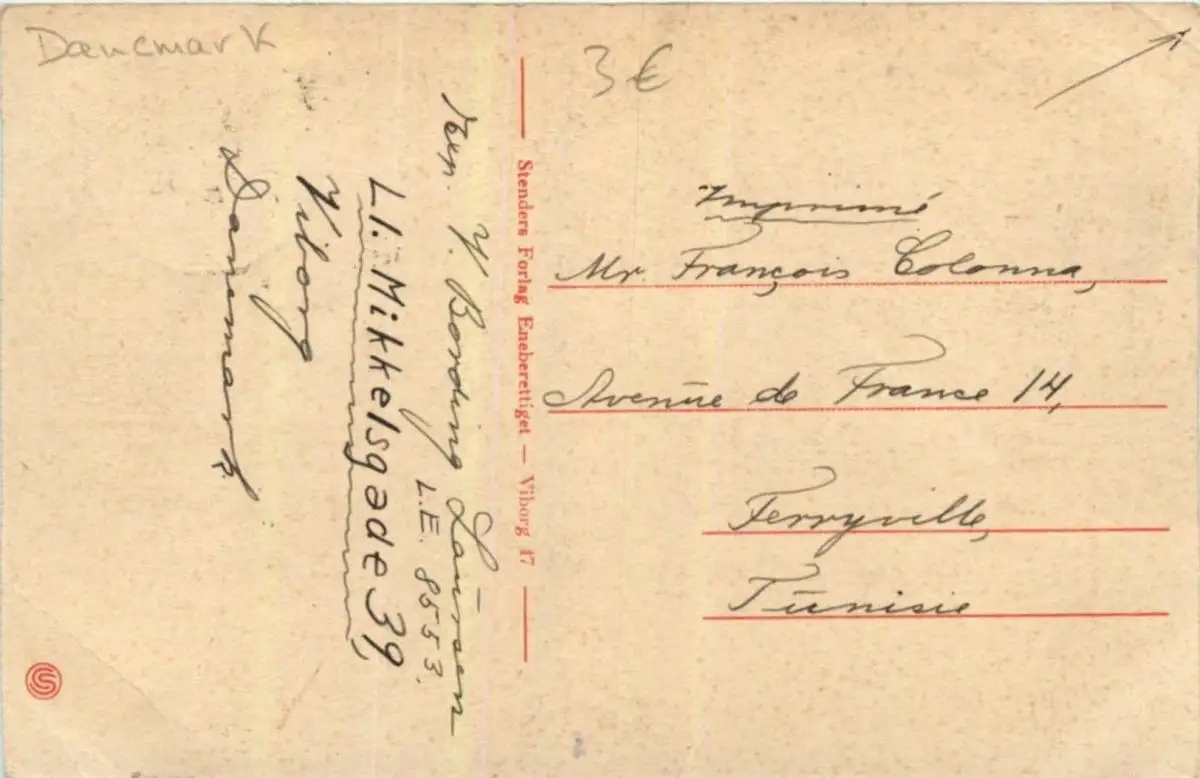 Danemark
3 €
Imprimé
Mr. François Colonna,
Avenue de France 14,
Ferryville,
Tunisie
Stenders Forlag Eneberettiget — Viborg 17
V. Bording Laursen
L.E. 8553.
Ll. Mikkelsgade 39,
Viborg
Danemark.